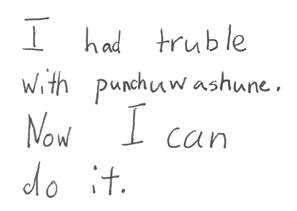 I had truble
with punchuwashune.
Now I can
do it.